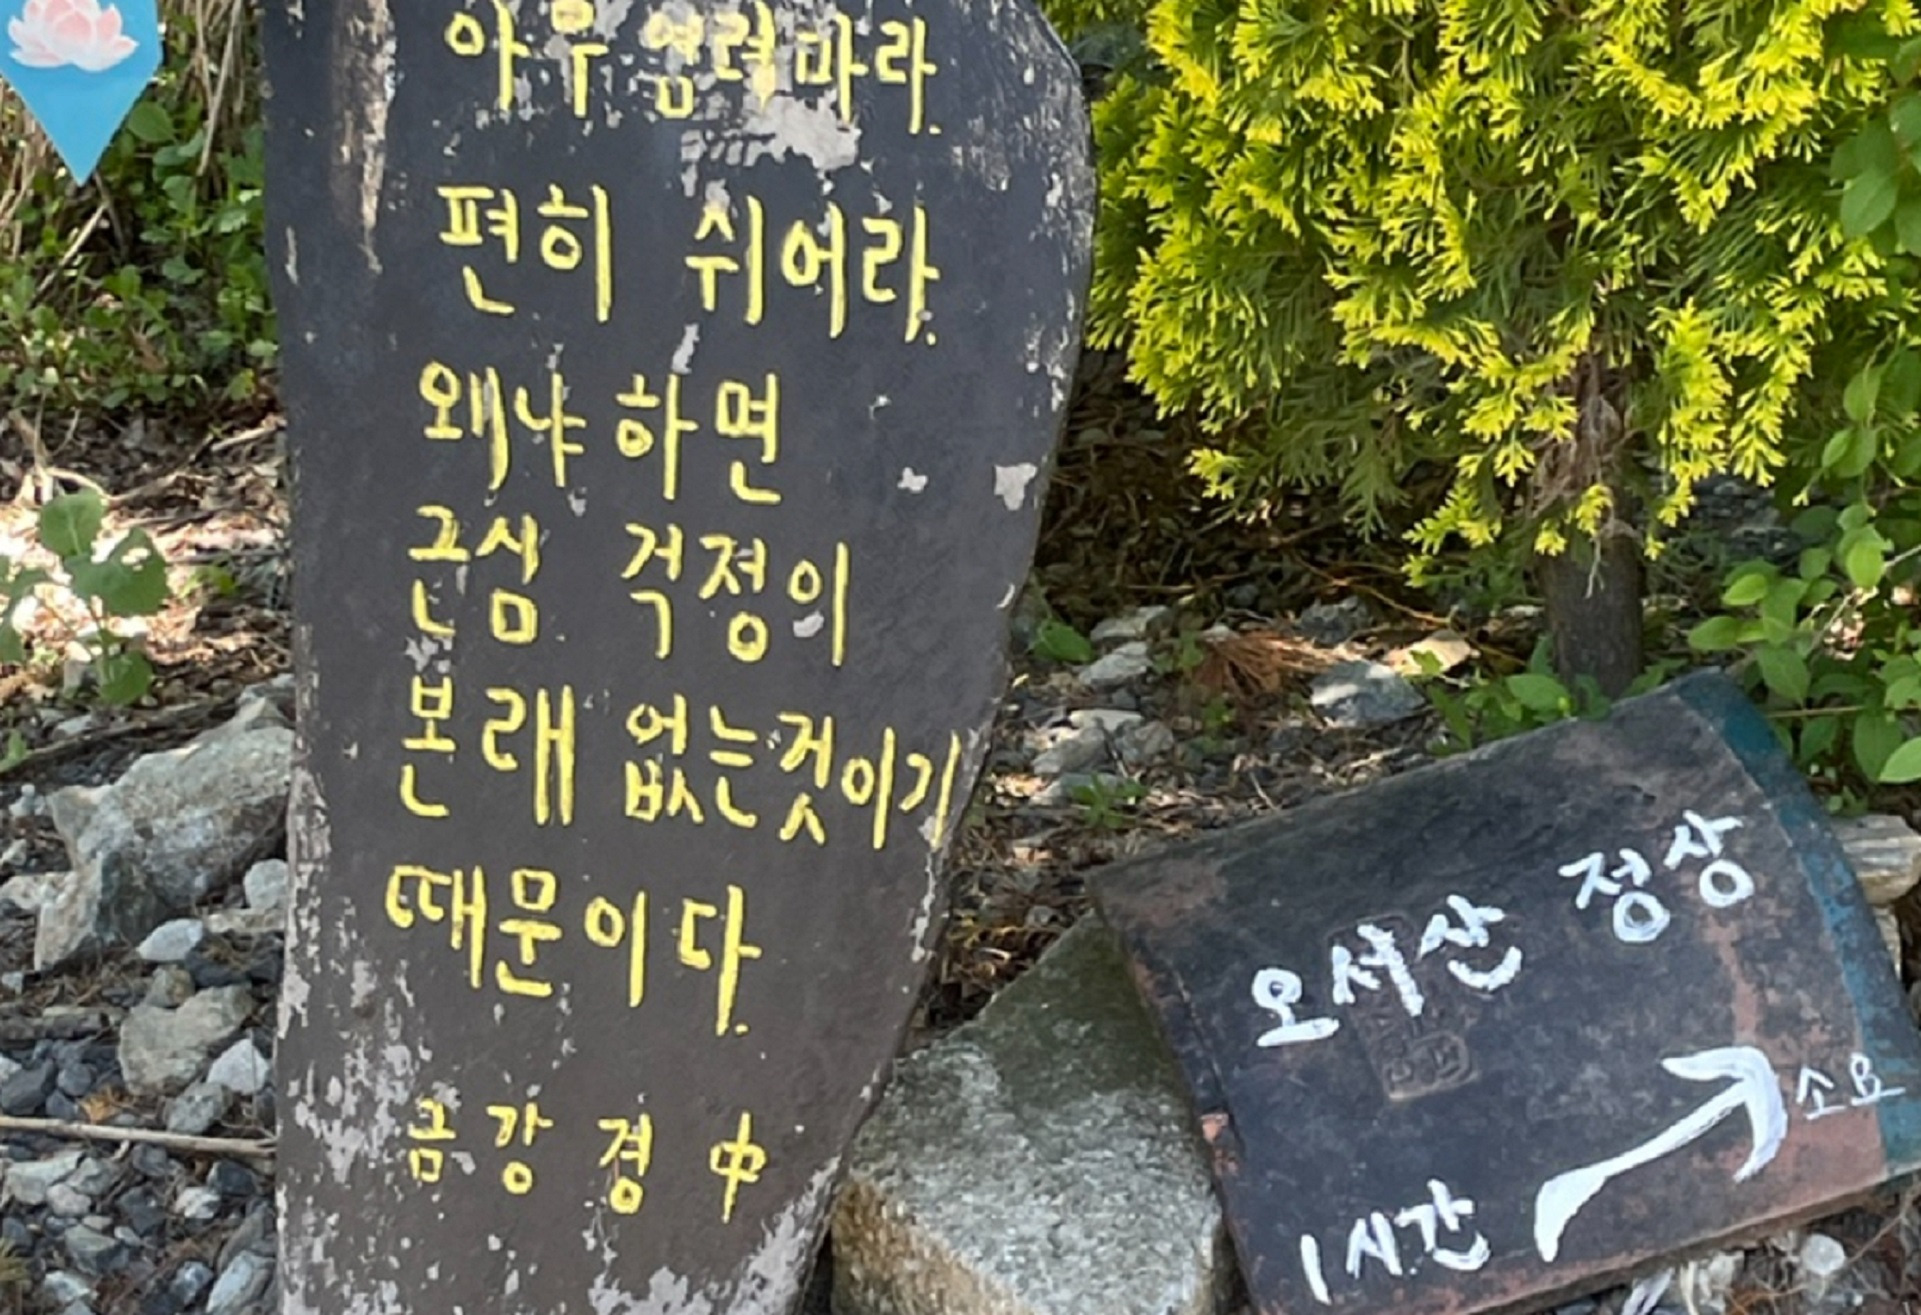 아무 염려마라.
편히 쉬어라.
왜냐하면
근심 걱정이
본래 없는것이기
때문이다.
금강경 中
오서산 정상
1시간 소요